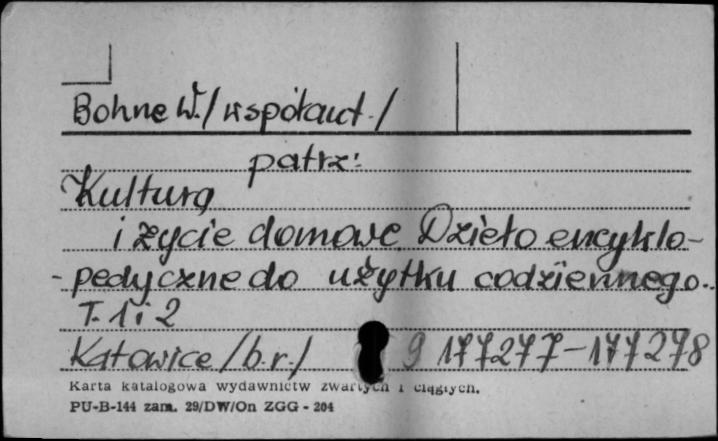 Bohne W. /współaut./
patrz:
Kultura
i życie domowe. Dzieło encyklo-
-pedyczne do użytku codziennego.
T. 1 i 2
Katowice /b.r./ 9 177277-177278
Karta katalogowa wydawnictw zwartych i ciągłych.
PU-B-144 zam. 29/DW/On ZGG - 204